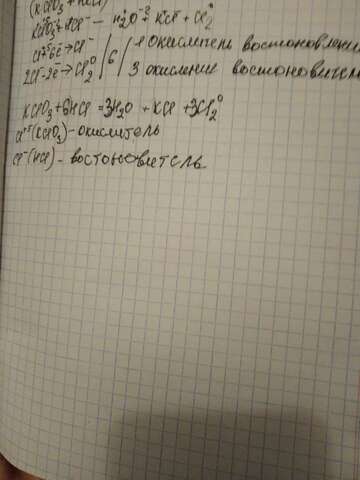 (KClO₃ + HCl)
KClO₃ + HCl⁻ — H₂O⁻² + KCl + Cl₂⁰
Cl⁺⁵ + 6e → Cl⁻ | 6 | 1 окислитель, восстановлени
2Cl⁻ - 2e → Cl₂⁰ 3 окисление восстоновител
KClO₃ + 6HCl = 3H₂O + KCl + 3Cl₂⁰
Cl⁺⁵ (KClO₃) - окислитель
Cl⁻ (HCl) - востоновитель